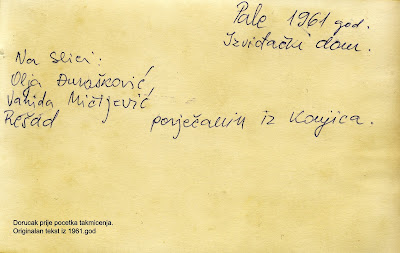 Pale 1961 god.
Izviđački dom.
Na slici:
Olja Đurašković,
Vahida Mičijević,
Rešad porječanin iz Konjica.
Dorucak prije pocetka takmicenja.
Originalan tekst iz 1961.god